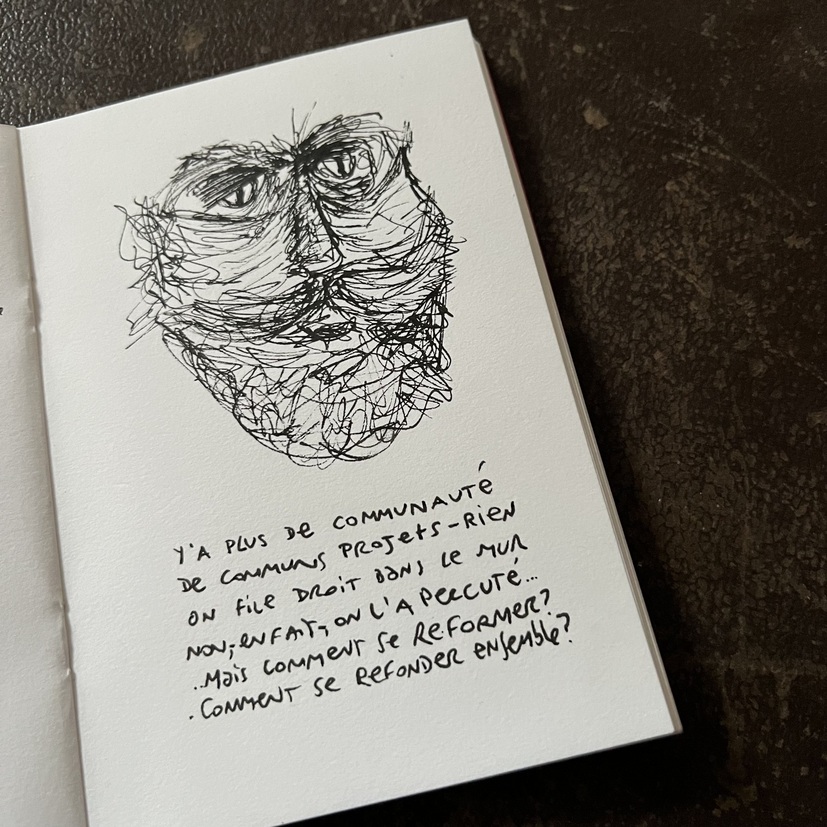 Y'A PLUS DE COMMUNAUTÉ
DE COMMUNS PROJETS-RIEN
ON FILE DROIT DANS LE MUR
NON, EN FAIT, ON L'A PERCUTÉ...
..MAIS COMMENT SE REFORMER?
.COMMENT SE REFONDER ENSEMBLE?